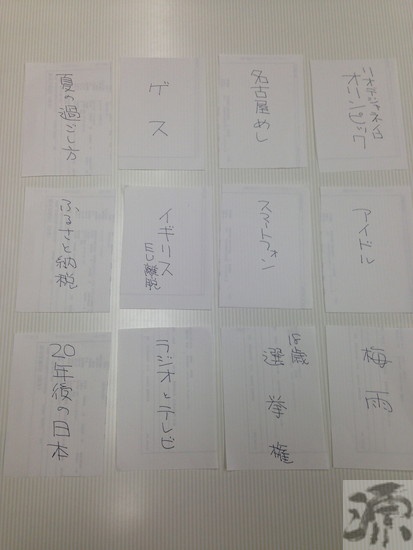 リオデジャネイロ
オリンピック
名古屋めし
ゲス
夏の過ごし方
アイドル
スマートフォン
イギリス
EU離脱
ふるさと納税
梅雨
18歳
選挙権
ラジオとテレビ
20年後の日本
源